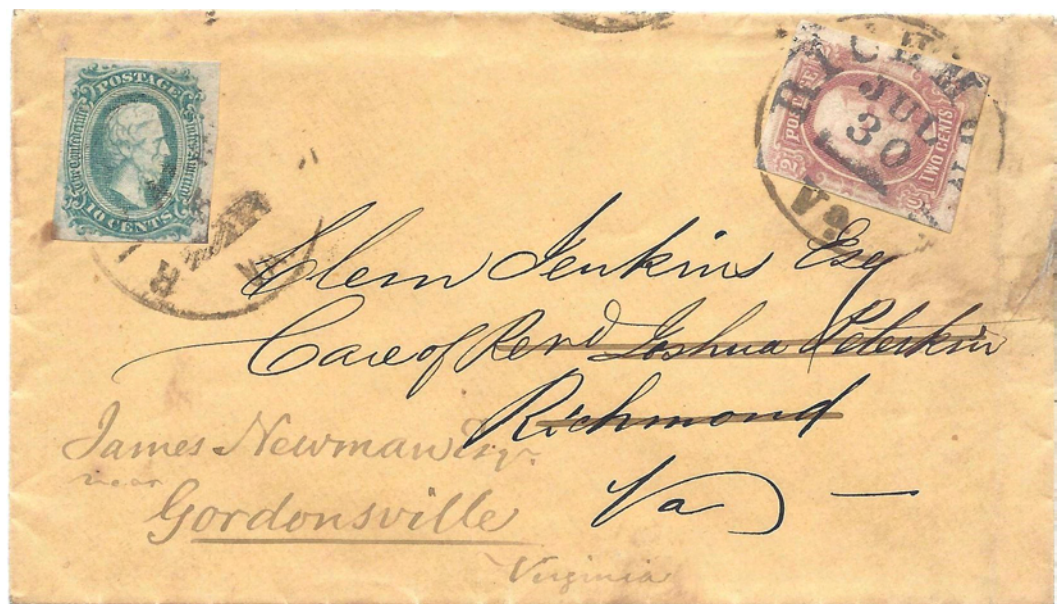 POSTAGE
The Confederate States of America
10 CENTS
RICHM
JUL
30
VA
POSTAGE
2
TWO CENTS
Clem Jenkins Esq
Care of Revd Joshua Peterkin
Richmond
Va
James Newman Esqr.
near
Gordonsville
Virginia